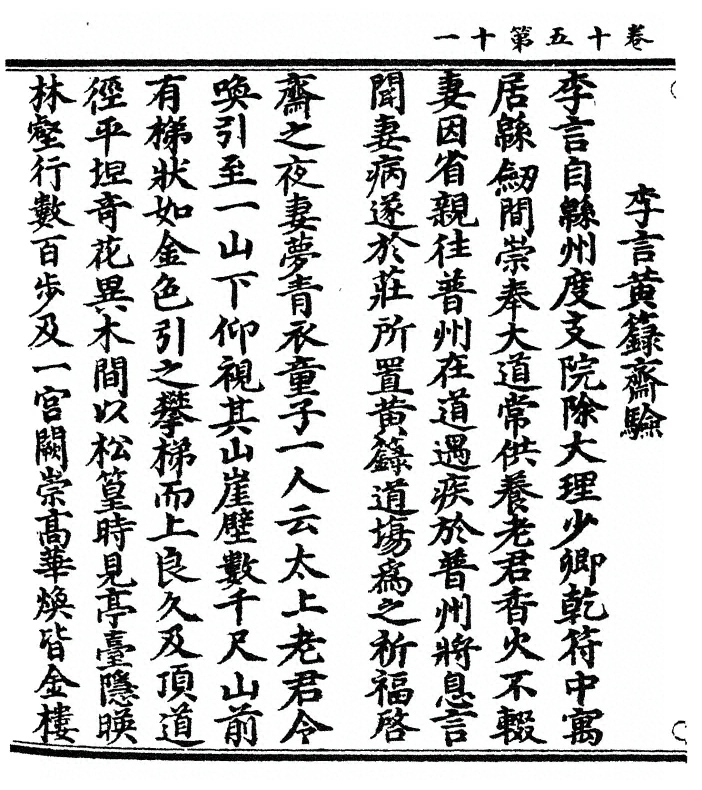 卷十五第十一
李言黃籙齋驗
李言自緜州度支院除大理少卿乾符中寓
居緜劒間崇奉大道常供養老君香火不輟
妻因省親往普州在道遇疾於普州將息言
聞妻病遂於莊所置黃籙道塲爲之祈福啓
齋之夜妻夢青衣童子一人云太上老君令
喚引至一山下仰視其山崖壁數千尺山前
有梯狀如金色引之攀梯而上良久及頂道
徑平坦竒花異木間以松篁時見亭臺隱暎
林壑行數百步及一宫闕崇髙華煥皆金樓